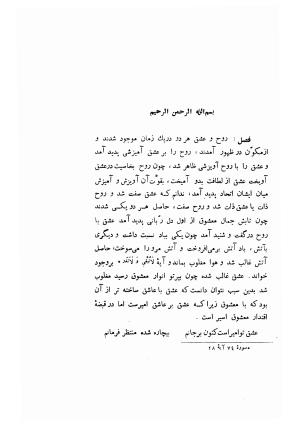 بسم‌الله الرحمن الرحیم
فصل : روح و عشق هر دو دریك زمان موجود شدند و
ازمکوّن در ظهور آمدند، روح را بر عشق آمیزشی پدید آمد
و عشق را با روح آویزشی ظاهر شد، چون روح بخاصیت درعشق
آویخت عشق از لطافت بدو آمیخت، بقوّت آن آویزش و آمیزش
میان ایشان اتحاد پدید آمد، ندانم که عشق صفت شد و روح
ذات یا عشق ذات شد و روح صفت، حاصل هر دو یکی شدند
چون تابش جمال معشوق از اول دل ربّانی پدید آمد عشق با
روح درگفت و شنید آمد چون یکی بباد نسبت داشت و دیگری
بآتش، باد آتش برمی‌افروخت و آتش مرو را می‌سوخت؛ حاصل
آتش غالب شد و هوا مغلوب بماند و آیهٔ لاتُبْقی وَلاتَذَر ۰ بروجود
خواند. عشق غالب شده چون ببرتو انوار معشوق رسید مغلوب
شد بدین سبب نتوان دانست که عشق با عاشق ساخته تر از آن
بود که با معشوق زیرا که عشق بر عاشق امیرست اما در قبضهٔ
اقتدار معشوق اسیر است .
عشق توامیراست‌کنون برجانم بیچاره شده منتظر فرمانم
۰سورهٔ ۷۴ آیهٔ ۲۸